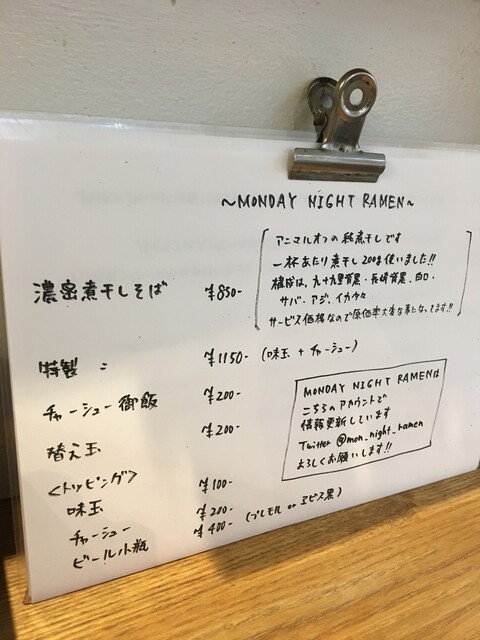 ~MONDAY NIGHT RAMEN~
アニマルオフの純煮干しです
一杯あたり煮干し200g使いました!!
構成は、九十九里背黒・長崎背黒・白口・
サバ・アジ・イカetc
サービス価格なので原価率大変な事になってます!!
濃密煮干しそば ¥850-
特製 〃 ¥1150- (味玉 + チャーシュー)
チャーシュー御飯 ¥200-
替え玉 ¥200-
<トッピング>
味玉 ¥100-
チャーシュー ¥200-
ビール小瓶 ¥400- (プレモル or ヱビス黒)
MONDAY NIGHT RAMENは
こちらのアカウントで
情報更新しています
Twitter @mon_night_ramen
よろしくお願いします!!